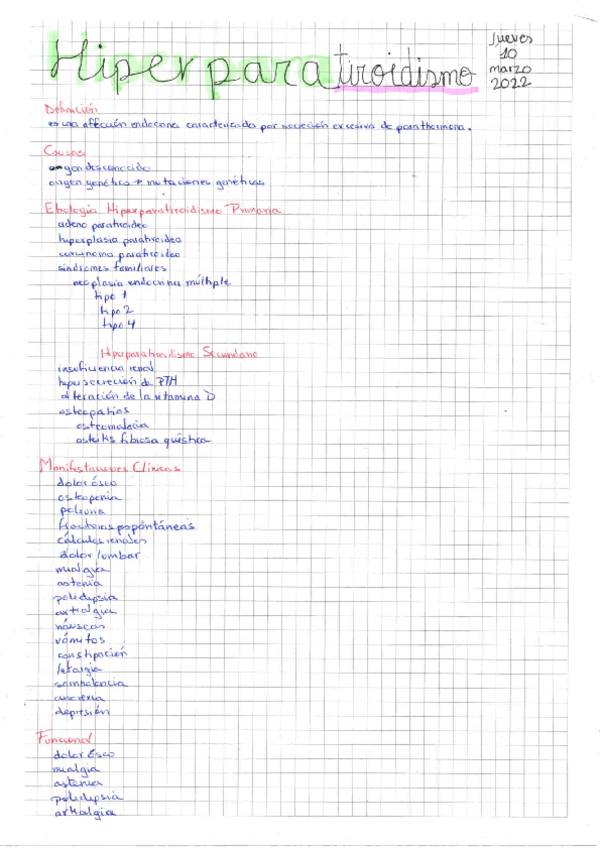 Hiperparatiroidismo
Jueves
10
marzo
2022
Definición
es una afección endocrina caracterizada por secreción excesiva de parathormona.
Causas
origen desconocido
origen genético → mutaciones genéticas
Etiología Hiperparatiroidismo Primario
adeno paratiroideo
hiperplasia paratiroidea
carcinoma paratiroideo
síndromes familiares
neoplasia endocrina múltiple
tipo 1
tipo 2
tipo 4
Hiperparatiroidismo Secundario
insuficiencia renal
hipersecreción de PTH
alteración de la vitamina D
osteopatías
osteomalacia
osteitis fibiosa quística
Manifestaciones Clínicas
dolor óseo
osteopenia
poliuria
fracturas popontáneas
cálculos renales
dolor lumbar
mialgia
astenia
polidipsia
artralgia
náuseas
vómitos
constipación
letargia
somnolencia
anorexia
depresión
Funcional
dolor óseo
mialgia
astenia
polidipsia
artralgia